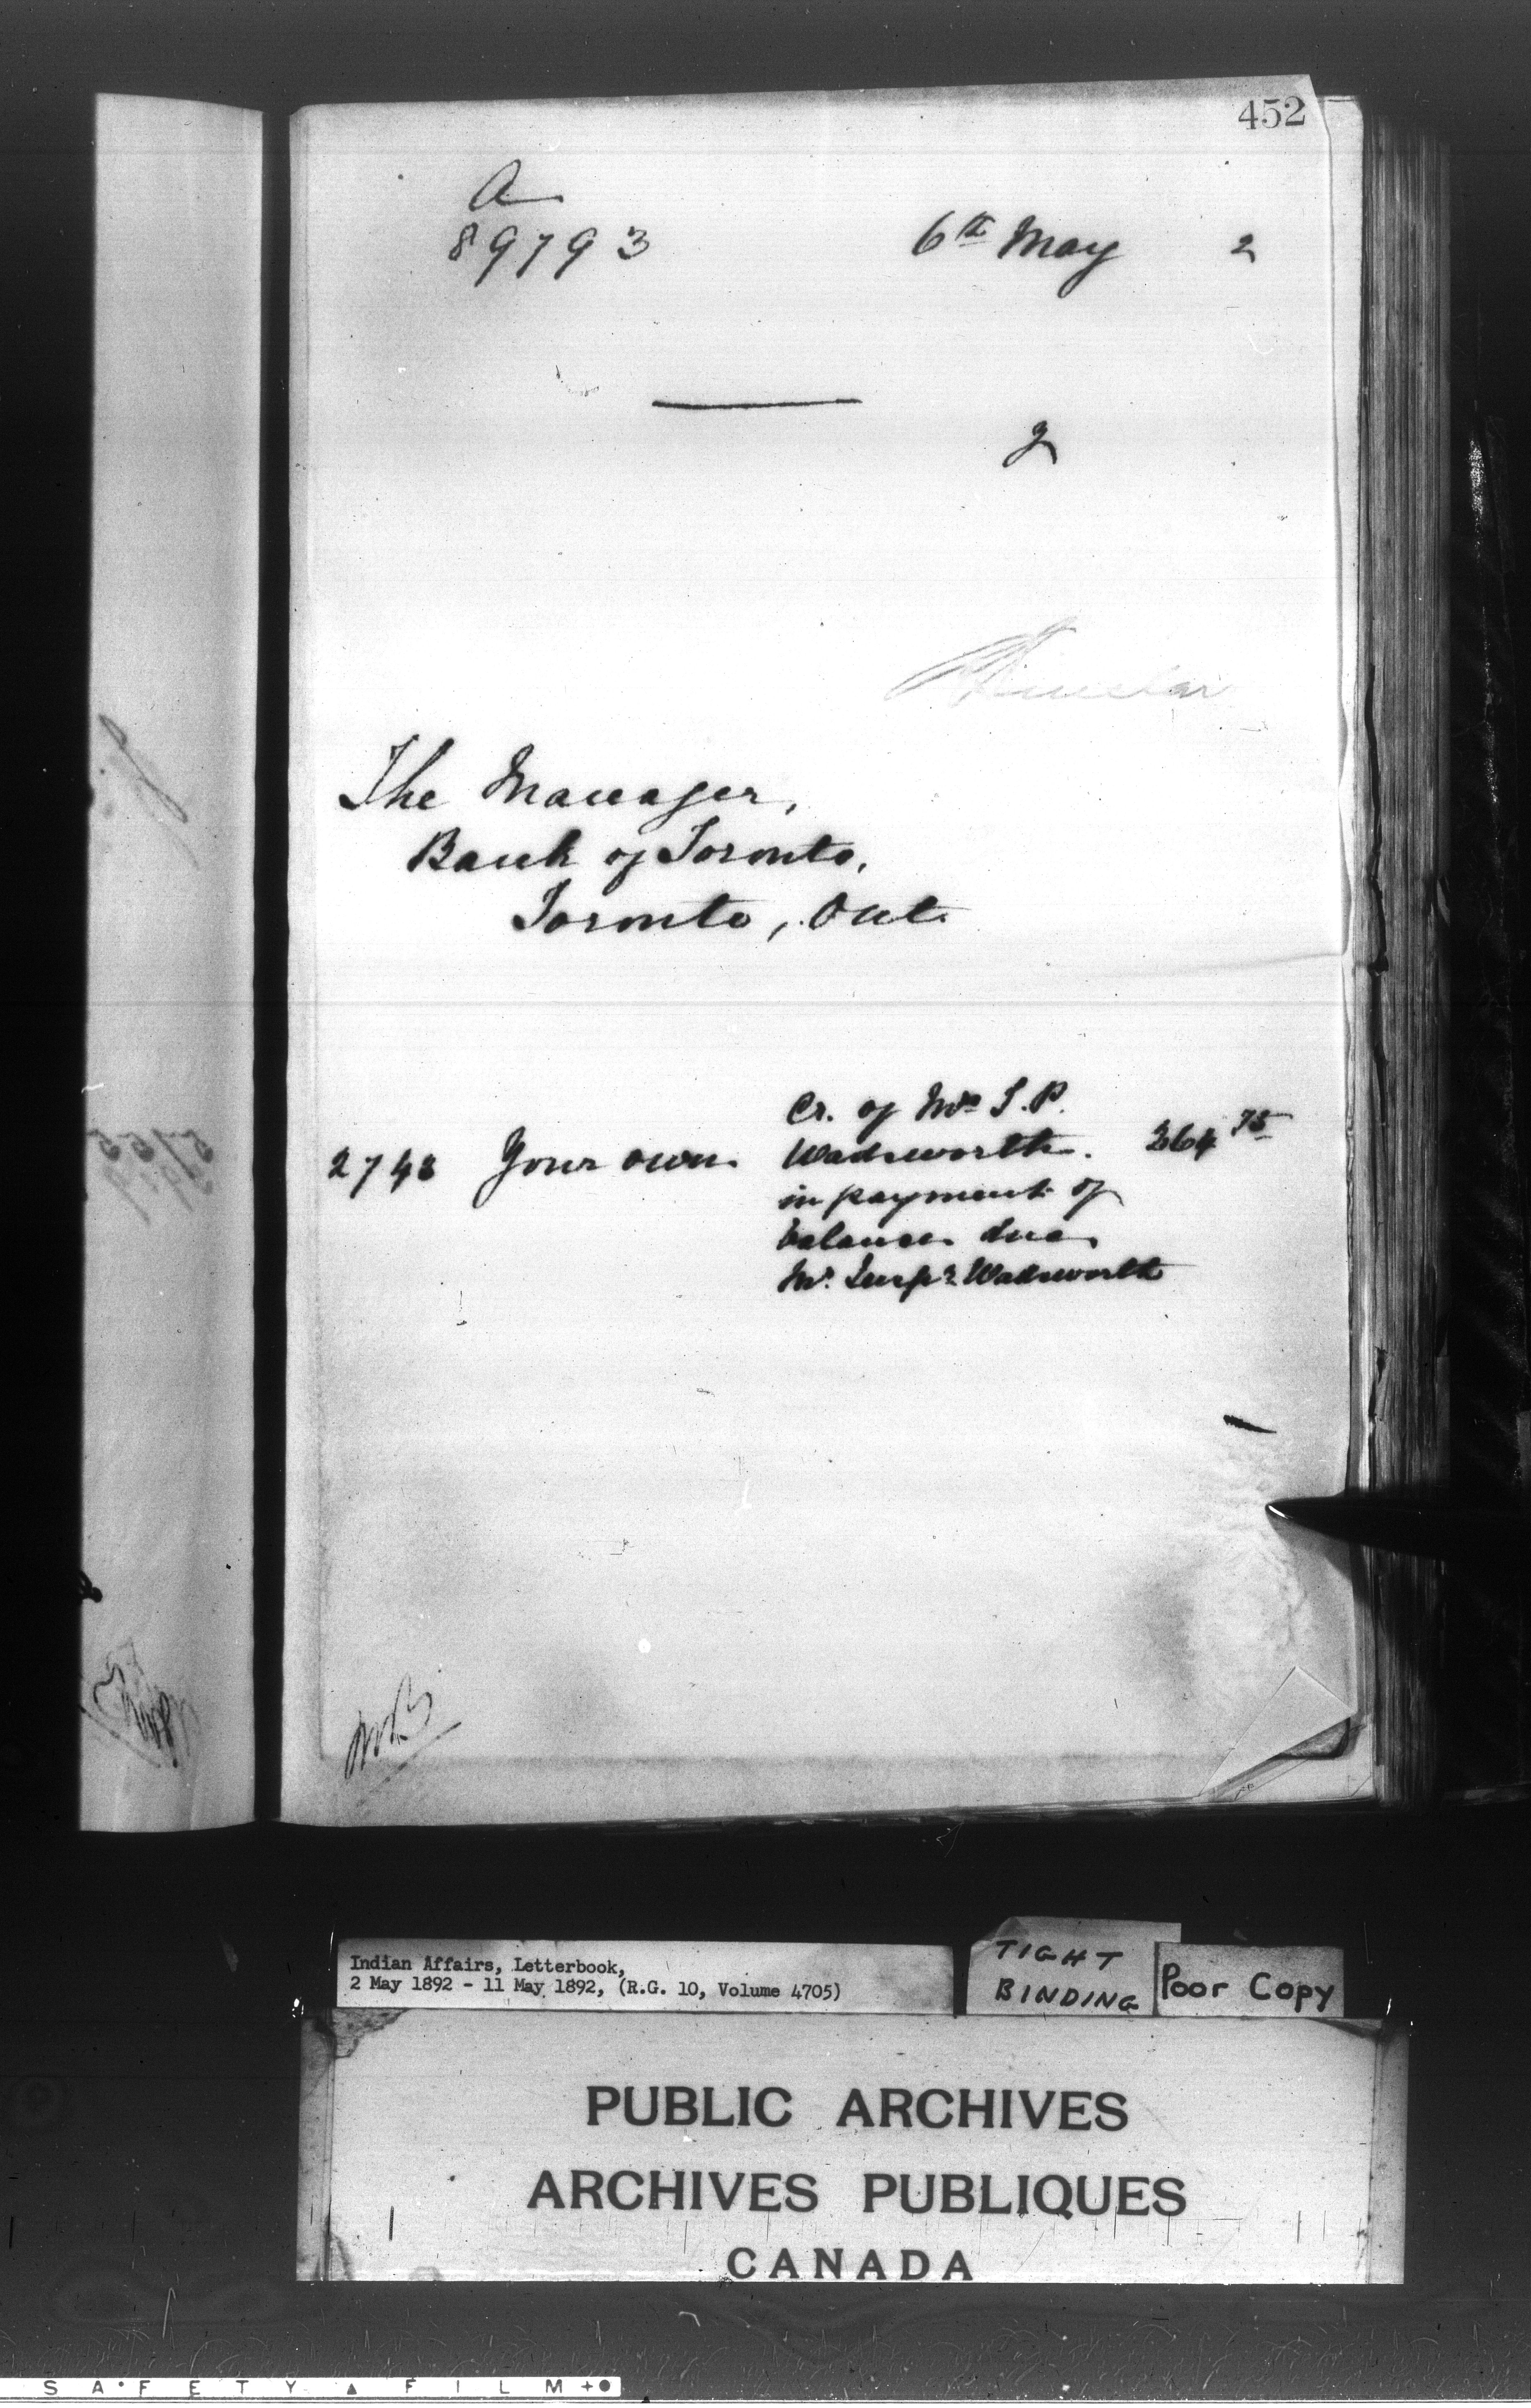 452
A
89793 6th May 2
2
Sinclair
The Manager,
Bank of Toronto,
Toronto, Ont.
Cr. of Mrs T. P.
2748 Your own Wadsworth. 364 75
in payment of
balance due
Mr. Insp r Wadsworth
Indian Affairs, Letterbook,
2 May 1892 - 11 May 1892, (R.G. 10, Volume 4705)
TIGHT
BINDING
Poor Copy
PUBLIC ARCHIVES
ARCHIVES PUBLIQUES
CANADA
SAFETY FILM